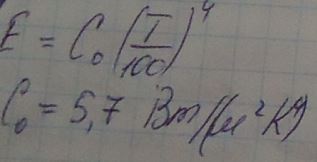 E = C₀ (T/100)⁴
C₀ = 5,7 Вт/(м²К⁴)